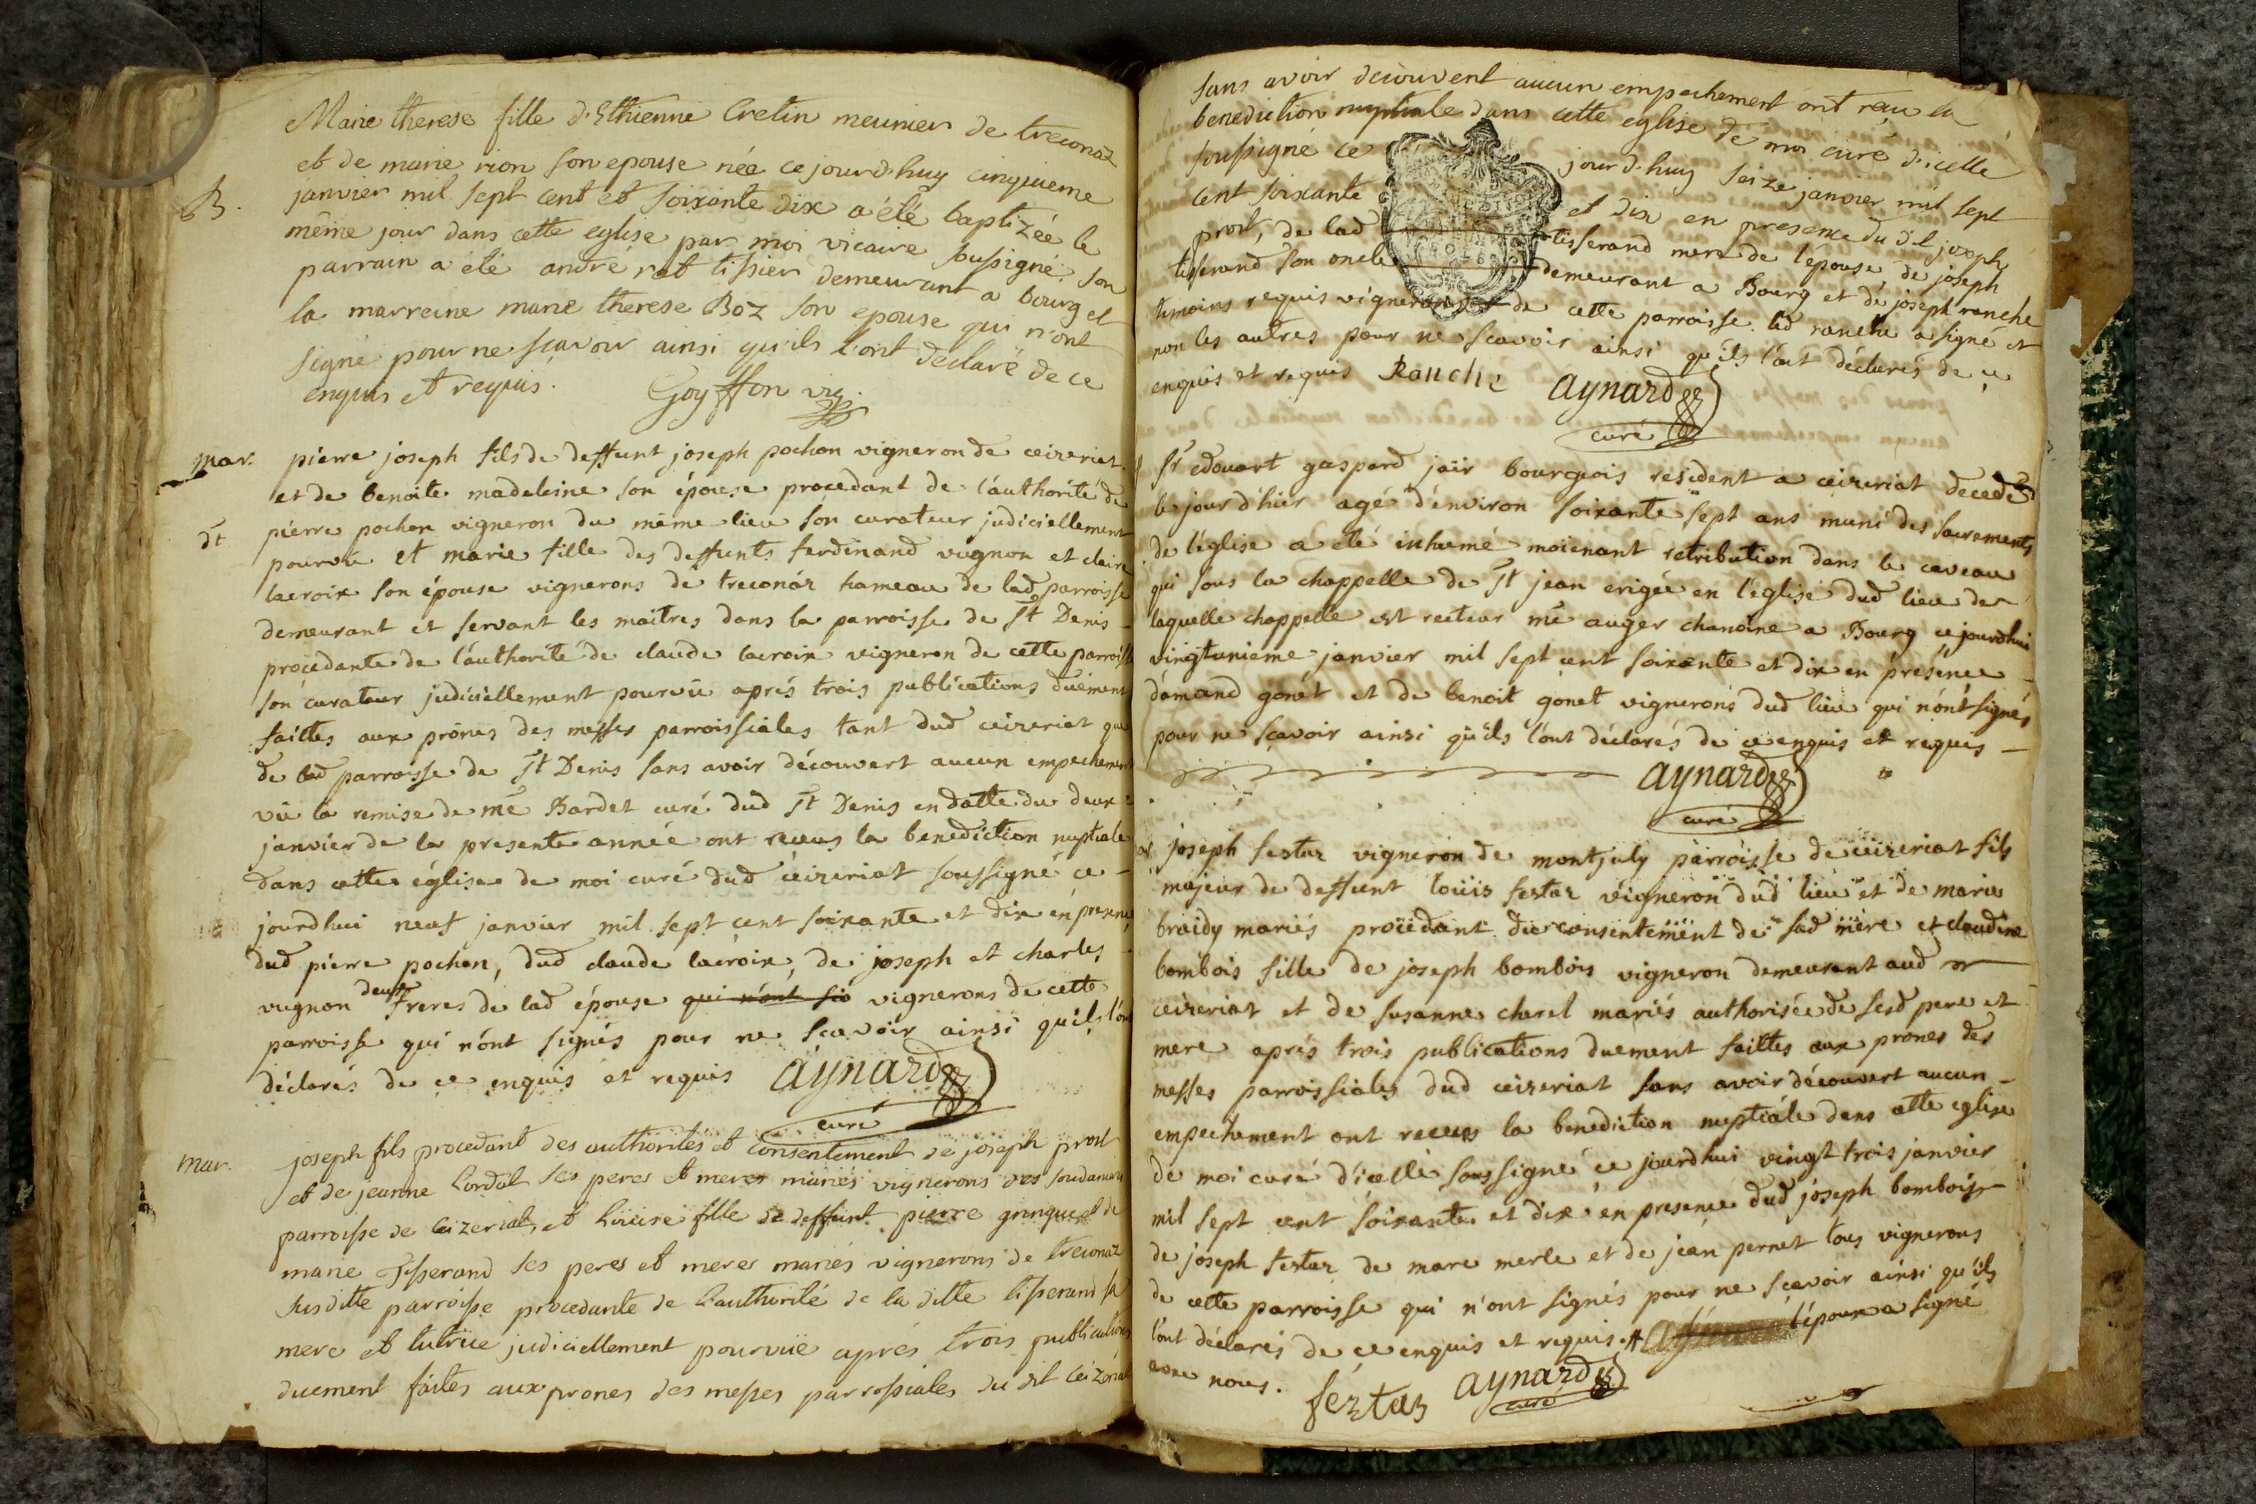 Marie therese fille d'Ethienne Cretin meunier de treconaz
et de marie rion son epouse née ce jourd'huy cinquieme
B.
janvier mil sept cent et soixante dix a été baptizée le
même jour dans cette eglise par moi vicaire soussigné son
parrain a été andré rat tissier demeurant a bourg et
la marreine marie therese Boz son epouse qui n'ont
signé pour ne sçavoir ainsi qu'ils l'ont déclaré de ce
enquis et requis. Goyffon vic.
mar. pierre joseph fils de deffunt joseph pochon vigneron de ceizeriat
et de benoite madeleine son épouse procedant de l'authorité de
dt pierre pochon vigneron du même lieu son curateur judiciellement
pourvü et marie fille des deffunts ferdinand vugnon et claire
lacroix son épouse vignerons de treconáz hameau de lad parroisse
demeurant et servant les maitres dans la parroisse de St Denis
procedante de l'authorité de claude lacroix vigneron de cette parroisse
son curateur judiciellement pourvü aprés trois publications duëment
faittes aux prônes des messes parroissiales tant dud ceizeriat que
de lad parroisse de St Denis sans avoir découvert aucun empechement
vû la remise de me Bardet curé dud St Denis en datte du deux
janvier de la presente année ont receus la benediction nuptiale
dans cette église de moi curé dud ceizeriat soussigné ce
jourdhui neuf janvier mil sept cent soixante et dix en presence
dud pierre pochon, dud claude lacroix, de joseph et charles
vugnon deux freres de lad épouse qui n'ont sig vignerons de cette
parroisse qui n'ont signés pour ne scavoir ainsi qu'ils l'ont
déclarés de ce enquis et requis aynard
curé
mar. joseph fils procedant des authorités et consentement de joseph prost
et de jeanne Cordat ses peres et meres mariés vignerons
parroisse de Ceizeriat, et fille de deffunt pierre et de
marie Tisserand ses peres et meres mariés vignerons de treconaz
susditte parroisse procedante de l'authorité de la ditte tisserand sa
mere et tutrice judiciellement pourvüe aprés trois publications
duement faites aux prones des messes parroissiales du dit Ceizeriat
sans avoir decouvert aucun empechement ont reçu la
benediction nuptiale dans cette eglise de moi curé d'icelle
soussigné ce jourd'huy seize janvier mil sept
cent soixante et dix en presence du dit joseph
prost, de lad tisserand mere de l'épouse de joseph
tisserand son oncle demeurant a Bourg et de joseph ranche
temoins requis vignerons de cette parroisse. led ranche a signé et
non les autres pour ne scavoir ainsi qu'ils l'ont déclarés de ce
enquis et requis Ranche aynard
curé
Sr edouart gaspard jaïr bourgeois resident a ceizeriat decedé
le jour d'hier agé d'environ soixante sept ans muni des sacrements
de l'église a été inhumé moienant retribution dans le caveau
qui sous la chappelle de St jean erigée en l'église dud lieu de
laquelle chappelle est recteur me auger chanoine a Bourg cejourdhui
vingtunieme janvier mil sept cent soixante et dix en présence
d'amand gonet et de benoit gonet vignerons dud lieu qui n'ont signés
pour ne sçavoir ainsi qu'ils l'ont déclarés de ce enquis et requis
aynard
curé
joseph fertar vigneron de montjuly parroisse de ceizeriat fils
majeur de deffunt loüis fertar vigneron dud lieu et de marie
braidy mariés procedant du consentement de sad mère et claudine
bombois fille de joseph bombois vigneron demeurant aud
ceizeriat et de susanne charel mariés authorisée de sesd pere et
mere aprés trois publications duement faittes aux prones des
messes parroissiales dud ceizeriat sans avoir découvert aucun
empechement ont receus la benediction nuptiale dans cette eglise
de moi curé d'icelle soussigné ce jourdhui vingt trois janvier
mil sept cent soixante et dix en presence dud joseph bombois
de joseph fertar de marc merle et de jean pernet tous vignerons
de cette parroisse qui n'ont signés pour ne scavoir ainsi qu'ils
l'ont déclarés de ce enquis et requis. l'époux a signé
avec nous. fertar aynard
curé